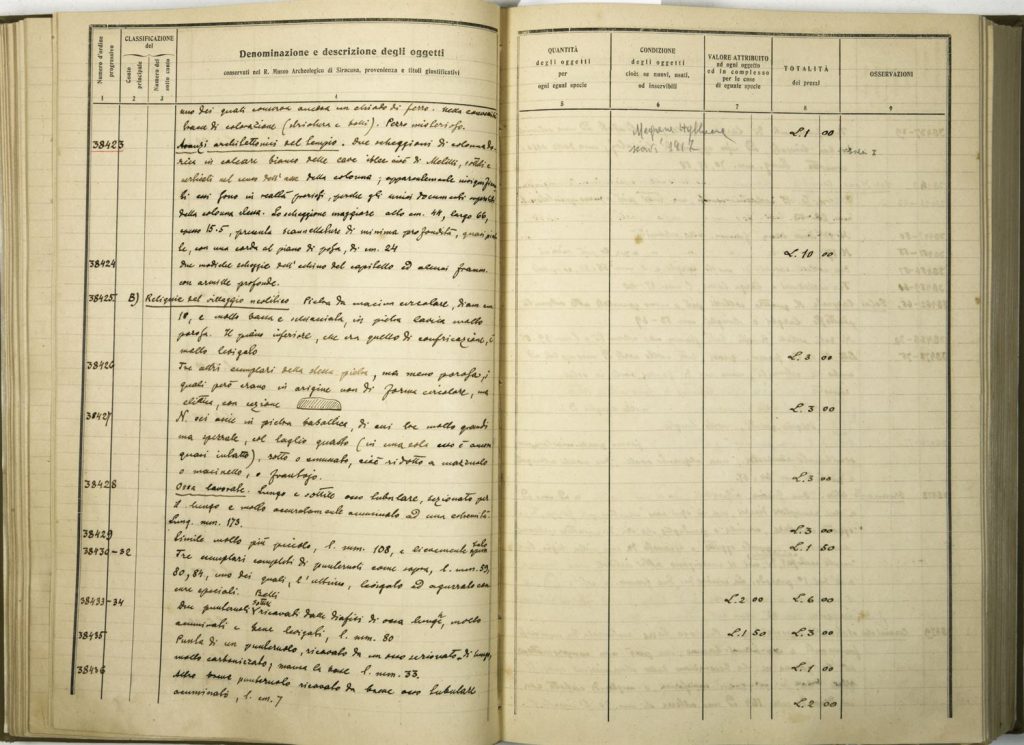 Numero d'ordine progressivo
CLASSIFICAZIONE del
Conto principale
Numero del sotto conto
Denominazione e descrizione degli oggetti
conservati nel R. Museo Archeologico di Siracusa, provenienza e titoli giustificativi
1 2 3 4
uno dei quali conserva ancora un chiodo di ferro.
base di colorazione
38423 Avanzi architettonici del tempio. Due scheggioni di colonna do-
rica in calcare bianco delle cave iblee cioè di Melilli, sottili e
verticali nel senso dell'asse della colonna; apparentemente insignifican-
ti essi sono in realtà preziosi, perchè gli unici documenti superstiti
della colonna stessa. Lo scheggione maggiore alto cm. 44, largo 66,
spesso 15.5, presenta scanellature di minima profondità, quasi piat-
te, con una corda al piano di posa, di cm. 24
38424 Due modiche scheggie dell'echino del capitello ed alcuni framm.
con armille profonde.
38425 B) Reliquie del villaggio neolitico Pietra da macina circolare, diam cm
10, e molto bassa e schiacciata, in pietra lavica molto
porosa. Il piano inferiore, che era quello di confricazione, è
molto levigato
38426 Tre altri esemplari della stessa pietra, ma meno porosa, i
quali però erano in origine non di forma circolare, ma
elittica, con sezione
38427 N. sei asce in pietra basaltica, di cui tre molto grandi
ma spezzate, col taglio guasto (in una sola esso è ancora
quasi intatto), rotto o consumato, cioè ridotto a mazzuolo
o macinello, o frantojo.
38428 Ossa lavorate. Lungo e sottile osso tubulare, sezionato per
il lungo e molto accuratamente acuminato ad una estremità
Lung. mm. 173.
38429 Simile molto più piccolo, l. mm. 108, e lievemente
38430-32 Tre esemplari completi di punteruoli come sopra, l. mm. 59,
80, 84, uno dei quali, l'ultimo, levigato ed aguzzato con
cure speciali.
38433-34 Due punteruoli Belli sottili ricavati dalle diafisi di ossa lunghe, molto
acuminati e bene levigati, l. mm. 80
38435 Punta di un punteruolo, ricavato da un osso sezionato di lungo,
molto carbonizzato; manca la base l. mm. 33.
38436 Altro bene punteruolo ricavato da osso tubulare
acuminato, l. cm. 7
QUANTITÀ degli oggetti per ogni egual specie
CONDIZIONE degli oggetti cioè: se nuovi, usati, od inservibili
VALORE ATTRIBUITO ad ogni oggetto ed in complesso per le cose di eguale specie
TOTALITÀ dei prezzi
OSSERVAZIONI
5 6 7 8 9
Megara Hyblaea
scavi 1917
L. 1 00
L. 10 00
L. 3 00
L. 3 00
L. 3 00
L. 3 00
L. 1 50
L. 2 00 L. 6 00
L. 1 50 L. 3 00
L. 1 00
L. 2 00